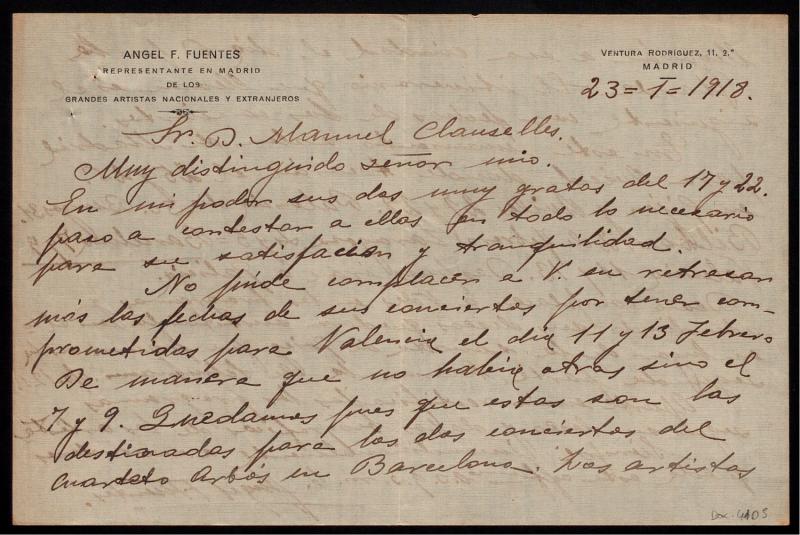 ANGEL F. FUENTES
REPRESENTANTE EN MADRID
DE LOS
GRANDES ARTISTAS NACIONALES Y EXTRANJEROS
VENTURA RODRÍGUEZ, 11, 2.º
MADRID
23=I=1918.
Sr. D. Manuel Clauselles.
Muy distinguido señor mio.
En mi poder sus dos muy gratas del 17 y 22.
paso a contestar a ellas en todo lo necesario
para su satisfacion y tranquilidad.
No pude complacer a V. en retrasar
más las fechas de sus conciertos por tener com-
prometidas para Valencia el dia 11 y 13 Febrero
De manera que no habia otras sino el
7 y 9. Quedamos pues que estas son las
destinadas para los dos conciertos del
cuarteto Arbós en Barcelona. Los artistas
Doc. 4105